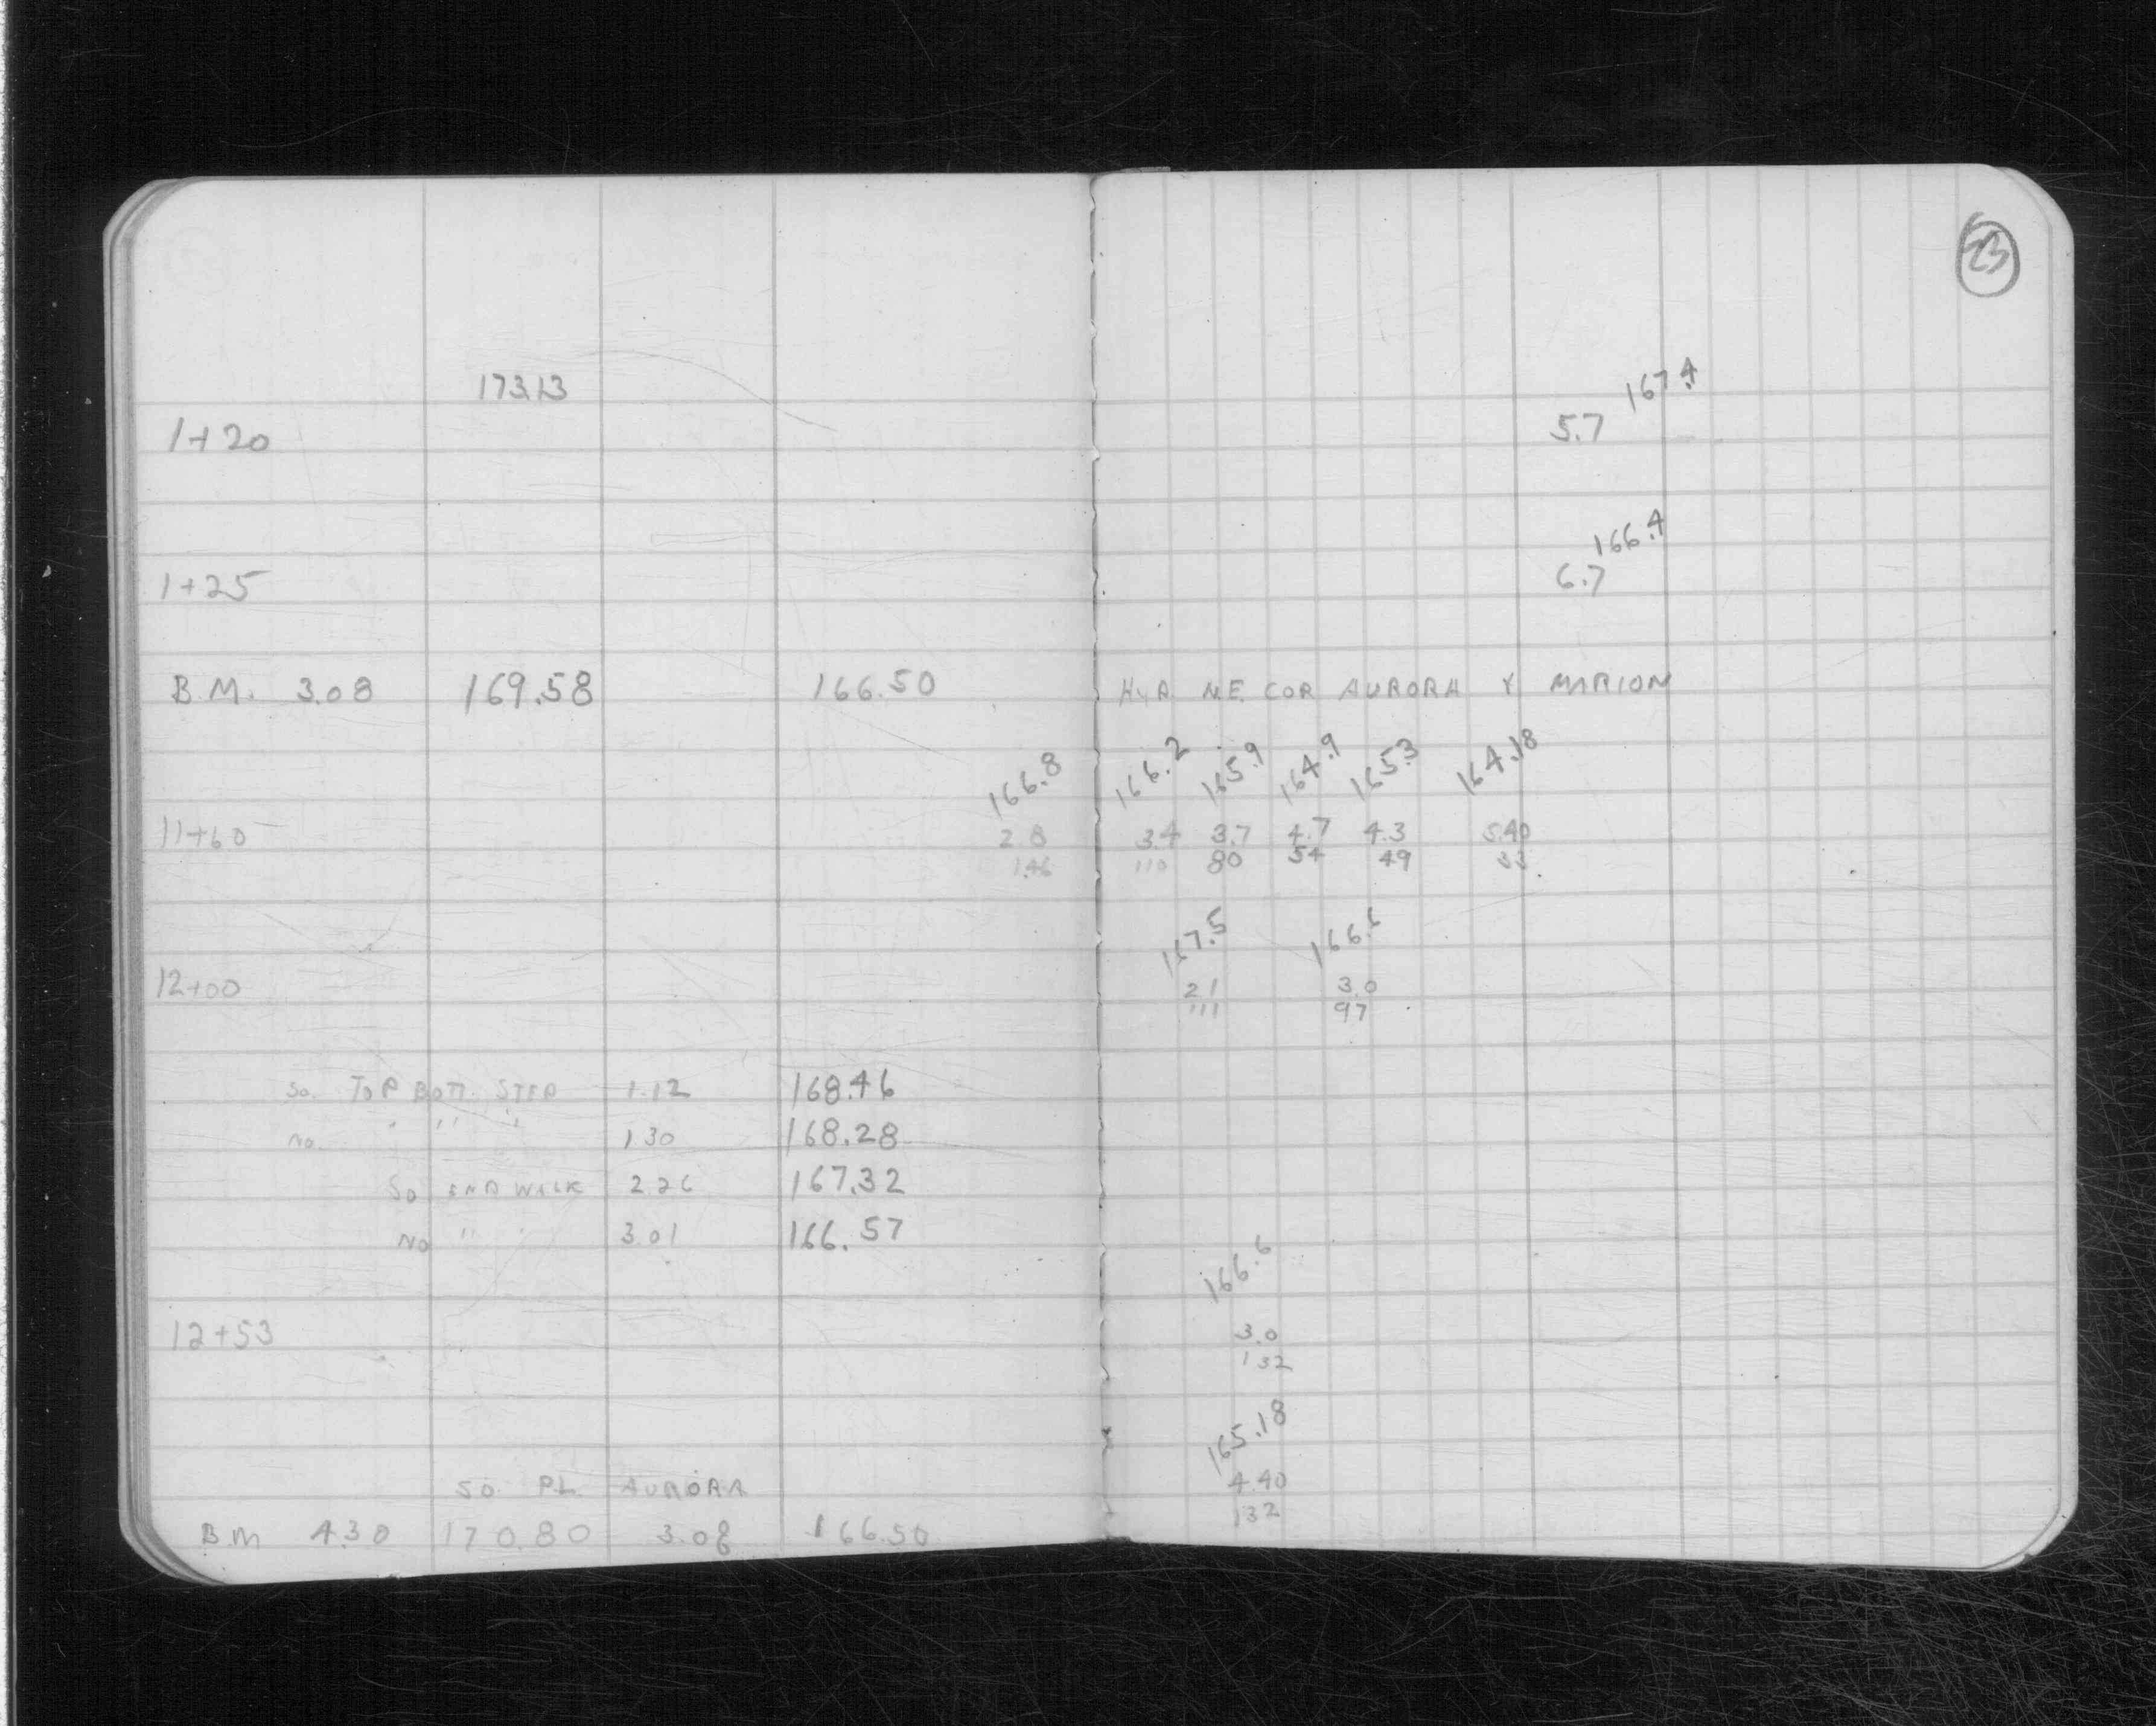 23
173.13
167.4
1+20 5.7
166.4
1+25 6.7
B.M. 3.08 169.58 166.50 HYD. N.E. COR AURORA & MARION
166.8 166.2 165.9 164.9 165.3 164.18
11+60 2.8 3.4 3.7 4.7 4.3 5.40
146 110 80 54 49 33
167.5 166.6
12+00 2.1 3.0
111 97
So. TOP BOTT. STEP 1.12 168.46
No. " " " 1.30 168.28
So END WALK 2.26 167.32
No " " 3.01 166.57
166.6
12+53 3.0
132
165.18
SO. P.L. AURORA 4.40
132
B.M 4.30 170.80 3.08 166.50